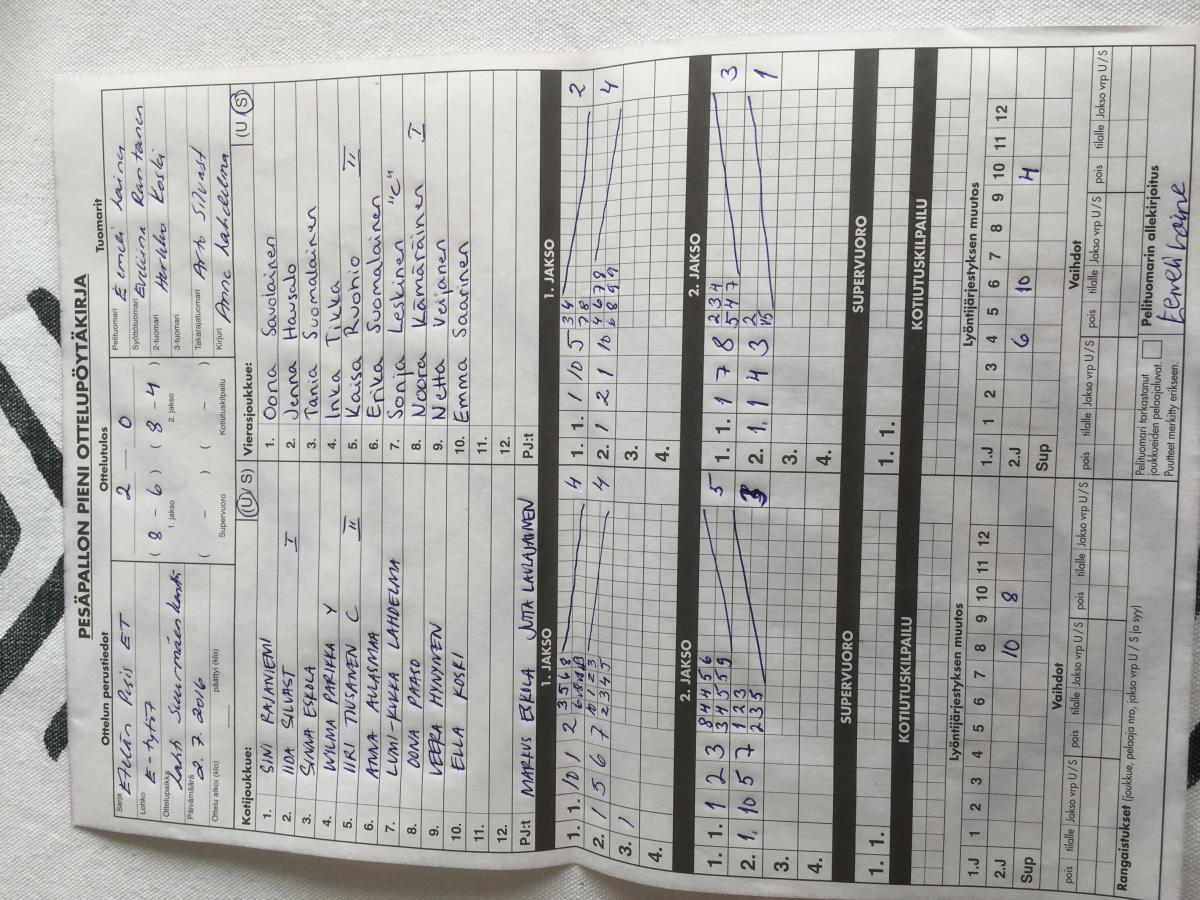 PESÄPALLON PIENI OTTELUPÖYTÄKIRJA
Ottelun perustiedot
Sarja
Lohko E-tytöt
Ottelupaikka Lahti
Päivämäärä 2.7.2016
Ottelu alkoi (klo) päättyi (klo)
Ottelutulos
2 — 0
( 8 – 6 ) ( 8 – 4 )
1. jakso 2. jakso
( – ) ( – )
Supervuoro Kotiutuskilpailu
Tuomarit
Pelituomari
Syöttötuomari Rantanen
2-tuomari Herkko Koski
3-tuomari
Takarajatuomari Arto Silvast
Kirjuri Anne Lahdelma
Kotijoukkue: (U/S)
1. SINI RAJANIEMI
2. IIDA SILVAST I
3. SINNA ESKOLA
4. WILMA PARIKKA Y
5. IIRI TIUSANEN C II
6. ANNA AULASMAA
7. LUMI-KUKKA LAHDELMA
8. OONA PAASO
9. VEERA HYNYNEN
10. ELLA KOSKI
11.
12.
PJ:t MARKUS ESKOLA JUTTA LAULAJAINEN
Vierasjoukkue: (U/S)
1. Oona Savolainen
2. Jenna Hausalo
3. Tania Suomalainen
4. Inka Tikka
5. Kaisa Ruohio II
6. Erika Suomalainen
7. Sonja Leskinen "C"
8. Noora Kämäräinen I
9. Netta Veijanen
10. Emma Saarinen
11.
12.
PJ:t
1. JAKSO
1. 1. 10 1 2 4
2. 1 5 6 7 4
3. 1
4.
1. JAKSO
1. 1. 1 10 5 3 4 7 8 2
2. 1 2 1 10 4 6 7 8 6 8 9 9 4
3.
4.
2. JAKSO
1. 1. 1 2 3 5
2. 1. 10 5 7 1 2 3 2 3 5 3
3.
4.
2. JAKSO
1. 1. 1 7 8 2 3 4 5 4 7 3
2. 1. 1 4 3 2 1
3.
4.
SUPERVUORO
1. 1.
SUPERVUORO
1. 1.
KOTIUTUSKILPAILU
KOTIUTUSKILPAILU
Lyöntijärjestyksen muutos
1.J 1 2 3 4 5 6 7 8 9 10 11 12
2.J 10 8
Sup
Lyöntijärjestyksen muutos
1.J 1 2 3 4 5 6 7 8 9 10 11 12
2.J 6 10 4
Sup
Vaihdot
pois tilalle Jakso vrp U/S pois tilalle Jakso vrp U/S pois tilalle Jakso vrp U/S
Vaihdot
pois tilalle Jakso vrp U/S pois tilalle Jakso vrp U/S pois tilalle Jakso vrp U/S
Rangaistukset (joukkue, pelaaja nro, jakso vrp U/S ja syy)
Pelituomari tarkastanut
joukkueiden pelaajaluvat.
Puutteet merkitty erikseen.
Pelituomarin allekirjoitus